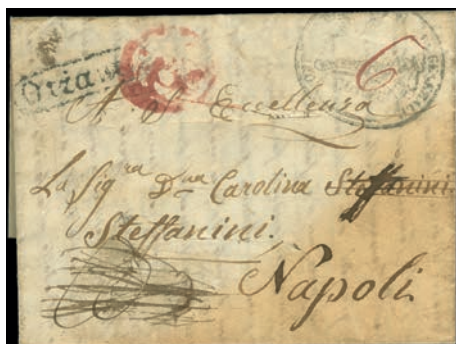 Oria
6
A. S. Eccellenza
La Sig.ra D.na Carolina Steffanini.
Steffanini.
Napoli